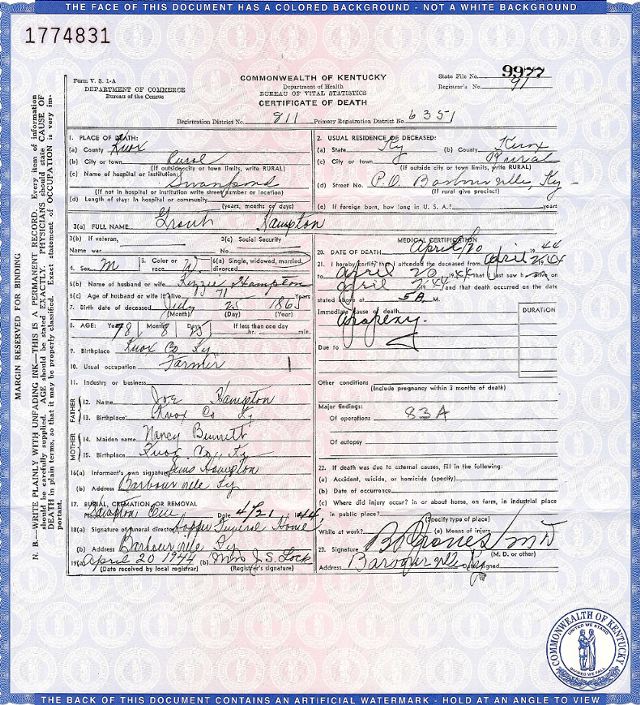 THE FACE OF THIS DOCUMENT HAS A COLORED BACKGROUND - NOT A WHITE BACKGROUND
1774831
Form V. S. 1-A
DEPARTMENT OF COMMERCE
Bureau of the Census
COMMONWEALTH OF KENTUCKY
Department of Health
BUREAU OF VITAL STATISTICS
CERTIFICATE OF DEATH
State File No. 9977
Registrar's No. 91
Registration District No. 911 Primary Registration District No. 6351
MARGIN RESERVED FOR BINDING
N. B.—WRITE PLAINLY WITH UNFADING INK—THIS IS A PERMANENT RECORD. Every item of information should be carefully supplied. AGE should be stated EXACTLY. PHYSICIANS should state CAUSE OF DEATH in plain terms, so that it may be properly classified. Exact statement of OCCUPATION is very important.
1. PLACE OF DEATH:
(a) County Knox
(b) City or town Rural
(If outside city or town limits, write RURAL)
(c) Name of hospital or institution:
Swanpond
(If not in hospital or institution write street number or location)
(d) Length of stay: In hospital or community
(years, months or days)
2. USUAL RESIDENCE OF DECEASED:
(a) State Ky (b) County Knox
(c) City or town Rural
(If outside city or town limits, write RURAL)
(d) Street No. P.O. Barbourville Ky
(If rural give precinct)
(e) If foreign born, how long in U. S. A.? years
3(a) FULL NAME Grant Hampton
3(b) If veteran,
Name war
3(c) Social Security
No.
4. Sex M
5. Color or race W
6(a) Single, widowed, married, divorced
6(b) Name of husband or wife Hampton
6(c) Age of husband or wife if alive 71 Years
7. Birth date of deceased July 25 1865
(Month) (Day) (Year)
8. AGE: Years 78 Months 8 Days 25 If less than one day
hr. min.
9. Birthplace Knox Co Ky
10. Usual occupation Farmer
11. Industry or business
FATHER
12. Name Joe Hampton
13. Birthplace Knox Co Ky
MOTHER
14. Maiden name Nancy
15. Birthplace Knox Co, Ky
16(a) Informant's own signature Hampton
(b) Address Barbourville Ky
17. BURIAL, CREMATION OR REMOVAL
Cem. Date 4/21 1944
18(a) Signature of funeral director Funeral Home
(b) Address Barbourville Ky
19(a) April 20 1944 (b) Mrs J. S. Lock
(Date received by local registrar) (Registrar's signature)
MEDICAL CERTIFICATION
20. DATE OF DEATH April 20 1944
21. I hereby certify that I attended the deceased from April 2 44
to April 20 44 that I last saw h alive on
April 2 44 and that death occurred on the date
stated above at 5 A M.
Immediate cause of death
Apoplexy
DURATION
Due to
Other conditions (Include pregnancy within 3 months of death)
Major findings:
Of operations 83A
Of autopsy
22. If death was due to external causes, fill in the following:
(a) Accident, suicide, or homicide (specify)
(b) Date of occurrence
(c) Where did injury occur? in or about home, on farm, in industrial place
in public place?
(Specify type of place)
While at work? (e) Means of injury
23. Signature Jones MD
(M. D. or other)
Address Barbourville Ky
COMMONWEALTH OF KENTUCKY
UNITED WE STAND
DIVIDED WE FALL
THE BACK OF THIS DOCUMENT CONTAINS AN ARTIFICIAL WATERMARK - HOLD AT AN ANGLE TO VIEW